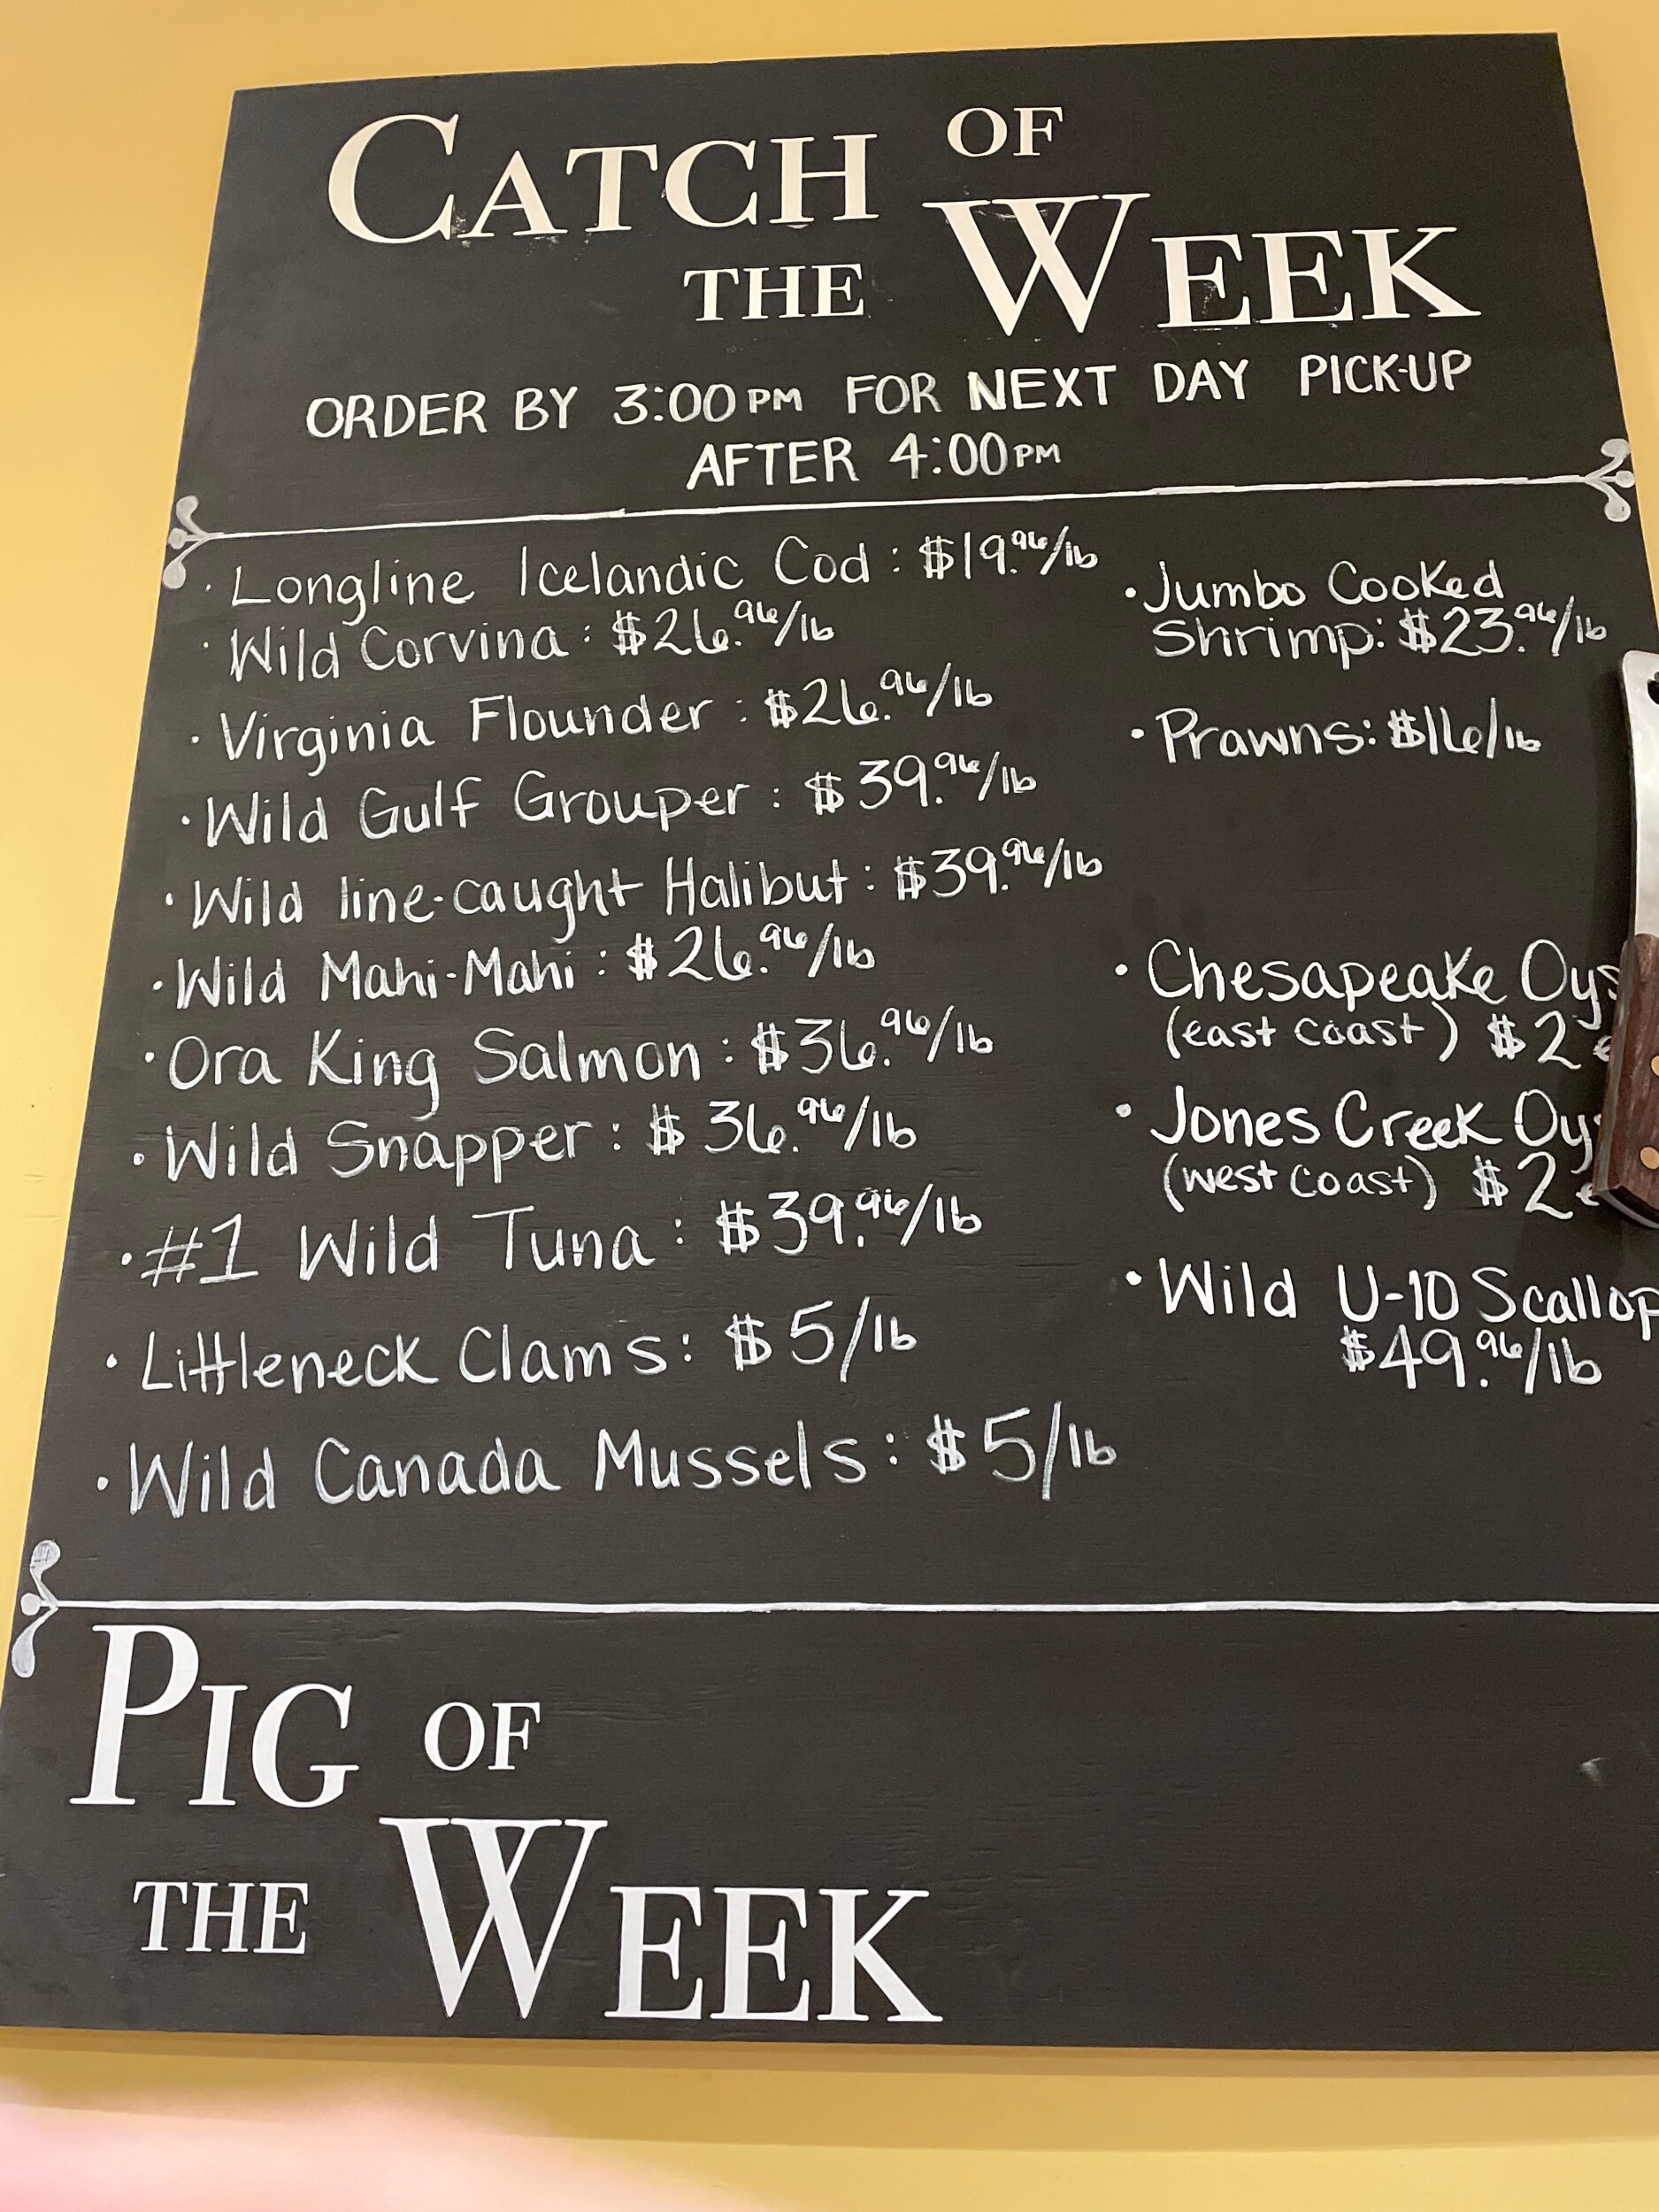 CATCH OF
THE WEEK
ORDER BY 3:00PM FOR NEXT DAY PICK-UP
AFTER 4:00PM
· Longline Icelandic Cod : $19.96/lb
· Wild Corvina : $26.96/lb
· Virginia Flounder : $26.96/lb
· Wild Gulf Grouper : $39.96/lb
· Wild line-caught Halibut : $39.96/lb
· Wild Mahi-Mahi : $26.96/lb
· Ora King Salmon : $36.96/lb
· Wild Snapper : $36.96/lb
· #1 Wild Tuna : $39.96/lb
· Littleneck Clams : $5/lb
· Wild Canada Mussels : $5/lb
· Jumbo Cooked
Shrimp: $23.96/lb
· Prawns: $16/lb
· Chesapeake
(east coast) $2
· Jones Creek
(west coast) $2
· Wild U-10 Scallop
$49.96/lb
PIG OF
THE WEEK